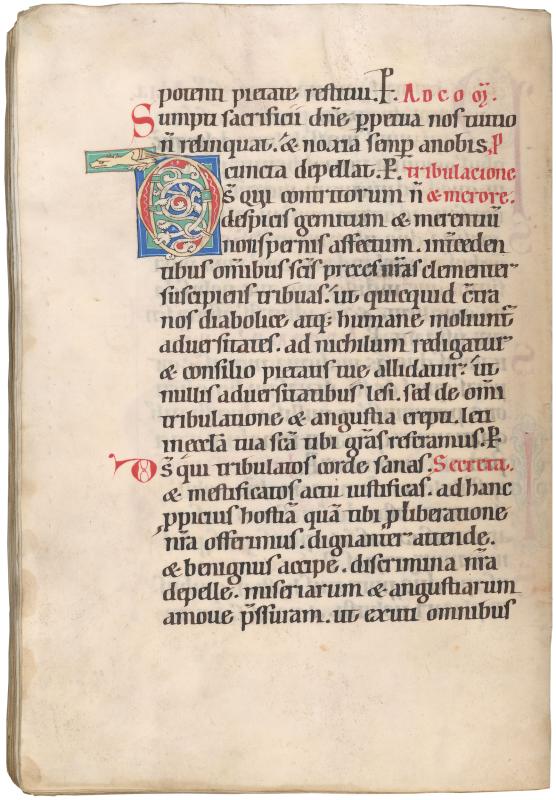 potenti pietate restitui. P. Ad co q̄.
Sumpti sacrificii dn̄e p̱petua nos tuitio
n̄ relinquat. & noxia semp̱ anobis, P
cuncta depellat. P. tribulacione
Os̄ qui contritorum n̄ & merore.
despicis gemitum & merentiū
non spernis affectum. inteceden
tibus om̄ibus sc̄is preces nr̄as clementer
suscipiens tribuas. ut quicquid ct̄ra
nos diabolice atq; humane moliunt̄
adversitates. ad nichilum redigatur
& consilio pietatis tue allidatur. ut
nullis adversitatibus lesi. sed de om̄i
tribulatione & angustia erepti. leti
in eccl̄a tua sc̄a tibi gr̄as referamus. P
Ds̄ qui tribulatos corde sanas. Secreta.
& mestificatos actu iustificas. ad hanc
p̱picius hostiā quā tibi p̱ liberatione
nr̄a offerimus. dignanter attende.
& benignus accipe. discrimina nr̄a
depelle. miseriarum & angustiarum
amove p̄ssuram. ut exuti omnibus